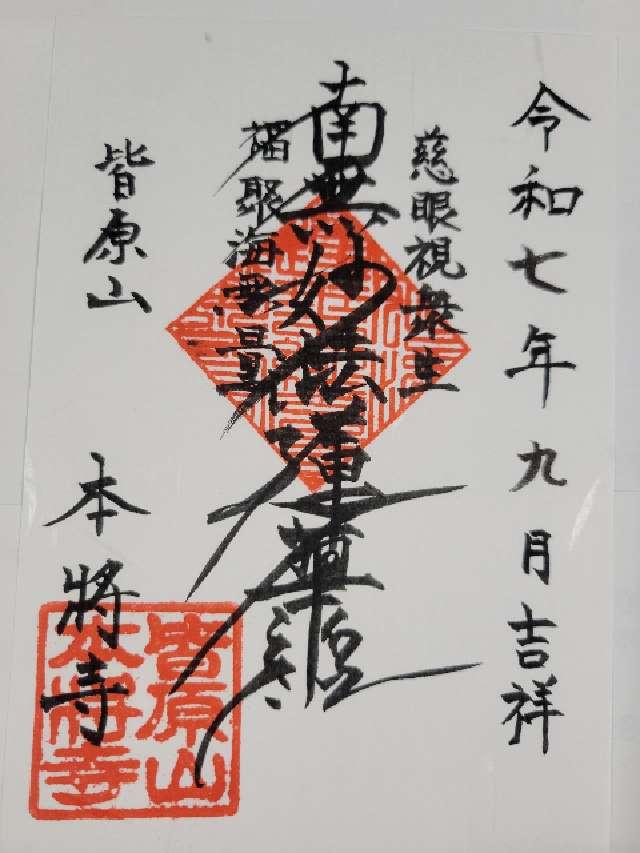 令和七年九月吉祥
慈眼視衆生
南無妙法蓮華経
福聚海無量
皆原山
本將寺
皆原山
本将寺